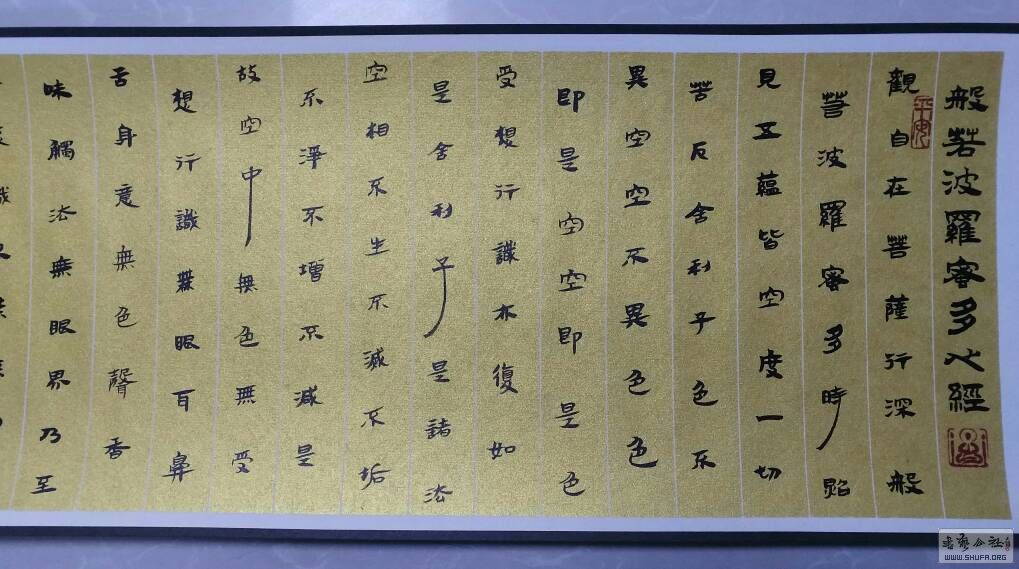 般若波羅蜜多心經
觀自在菩薩行深般
若波羅蜜多時照
見五蘊皆空度一切
苦厄舍利子色不
異空空不異色色
即是空空即是色
受想行識亦復如
是舍利子是諸法
空相不生不滅不垢
不淨不增不減是
故空中無色無受
想行識無眼耳鼻
舌身意無色聲香
味觸法無眼界乃至
平安
WWW.SHUFA.ORG